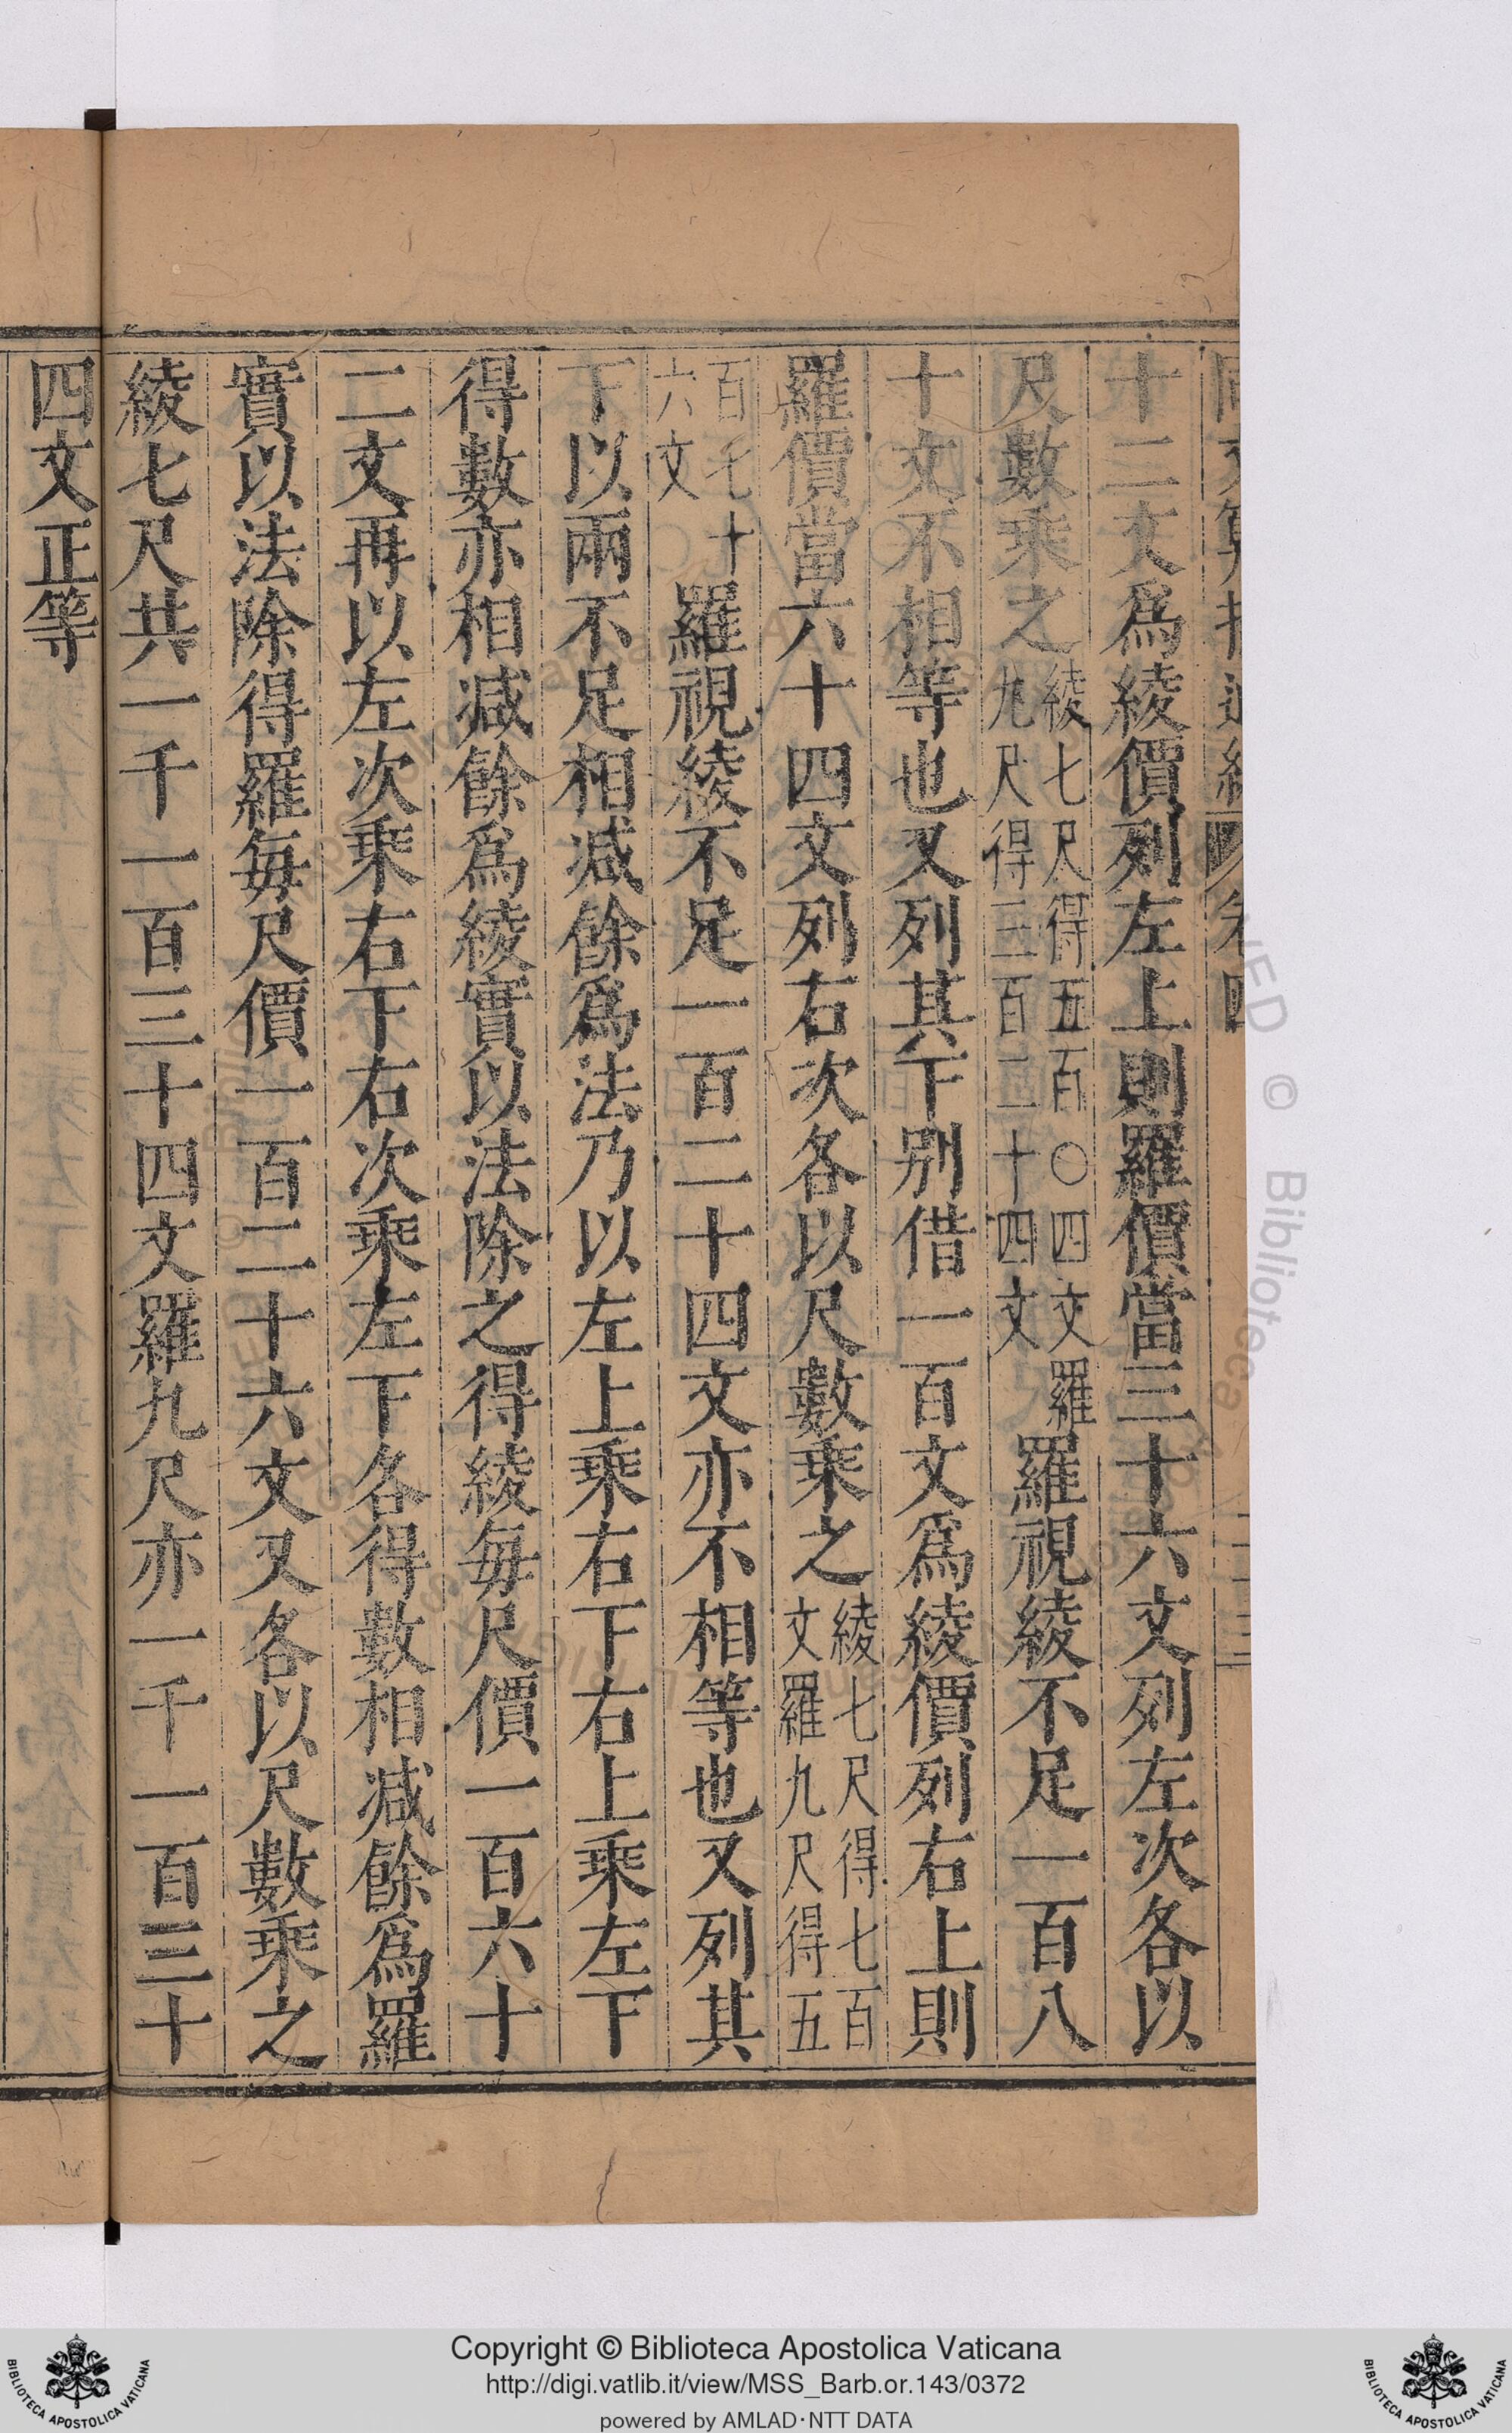 同文算指通編 卷四
十二文爲綾價列左上則羅價當三十六文列左次各以
尺數乘之綾七尺得五百〇四文羅九尺得三百二十四文羅視綾不足一百八
十文不相等也又列其下别借一百文爲綾價列右上則
羅價當六十四文列右次各以尺數乘之綾七尺得七百文羅九尺得五
百七十六文羅視綾不足一百二十四文亦不相等也又列其
下以兩不足相减餘爲法乃以左上乘右下右上乘左下
得數亦相减餘爲綾實以法除之得綾毎尺價一百六十
二文再以左次乘右下右次乘左下各得數相减餘爲羅
實以法除得羅毎尺價一百二十六文又各以尺數乘之
綾七尺共一千一百三十四文羅九尺亦一千一百三十
四文正等
Copyright © Biblioteca Apostolica Vaticana
http://digi.vatlib.it/view/MSS_Barb.or.143/0372
powered by AMLAD·NTT DATA